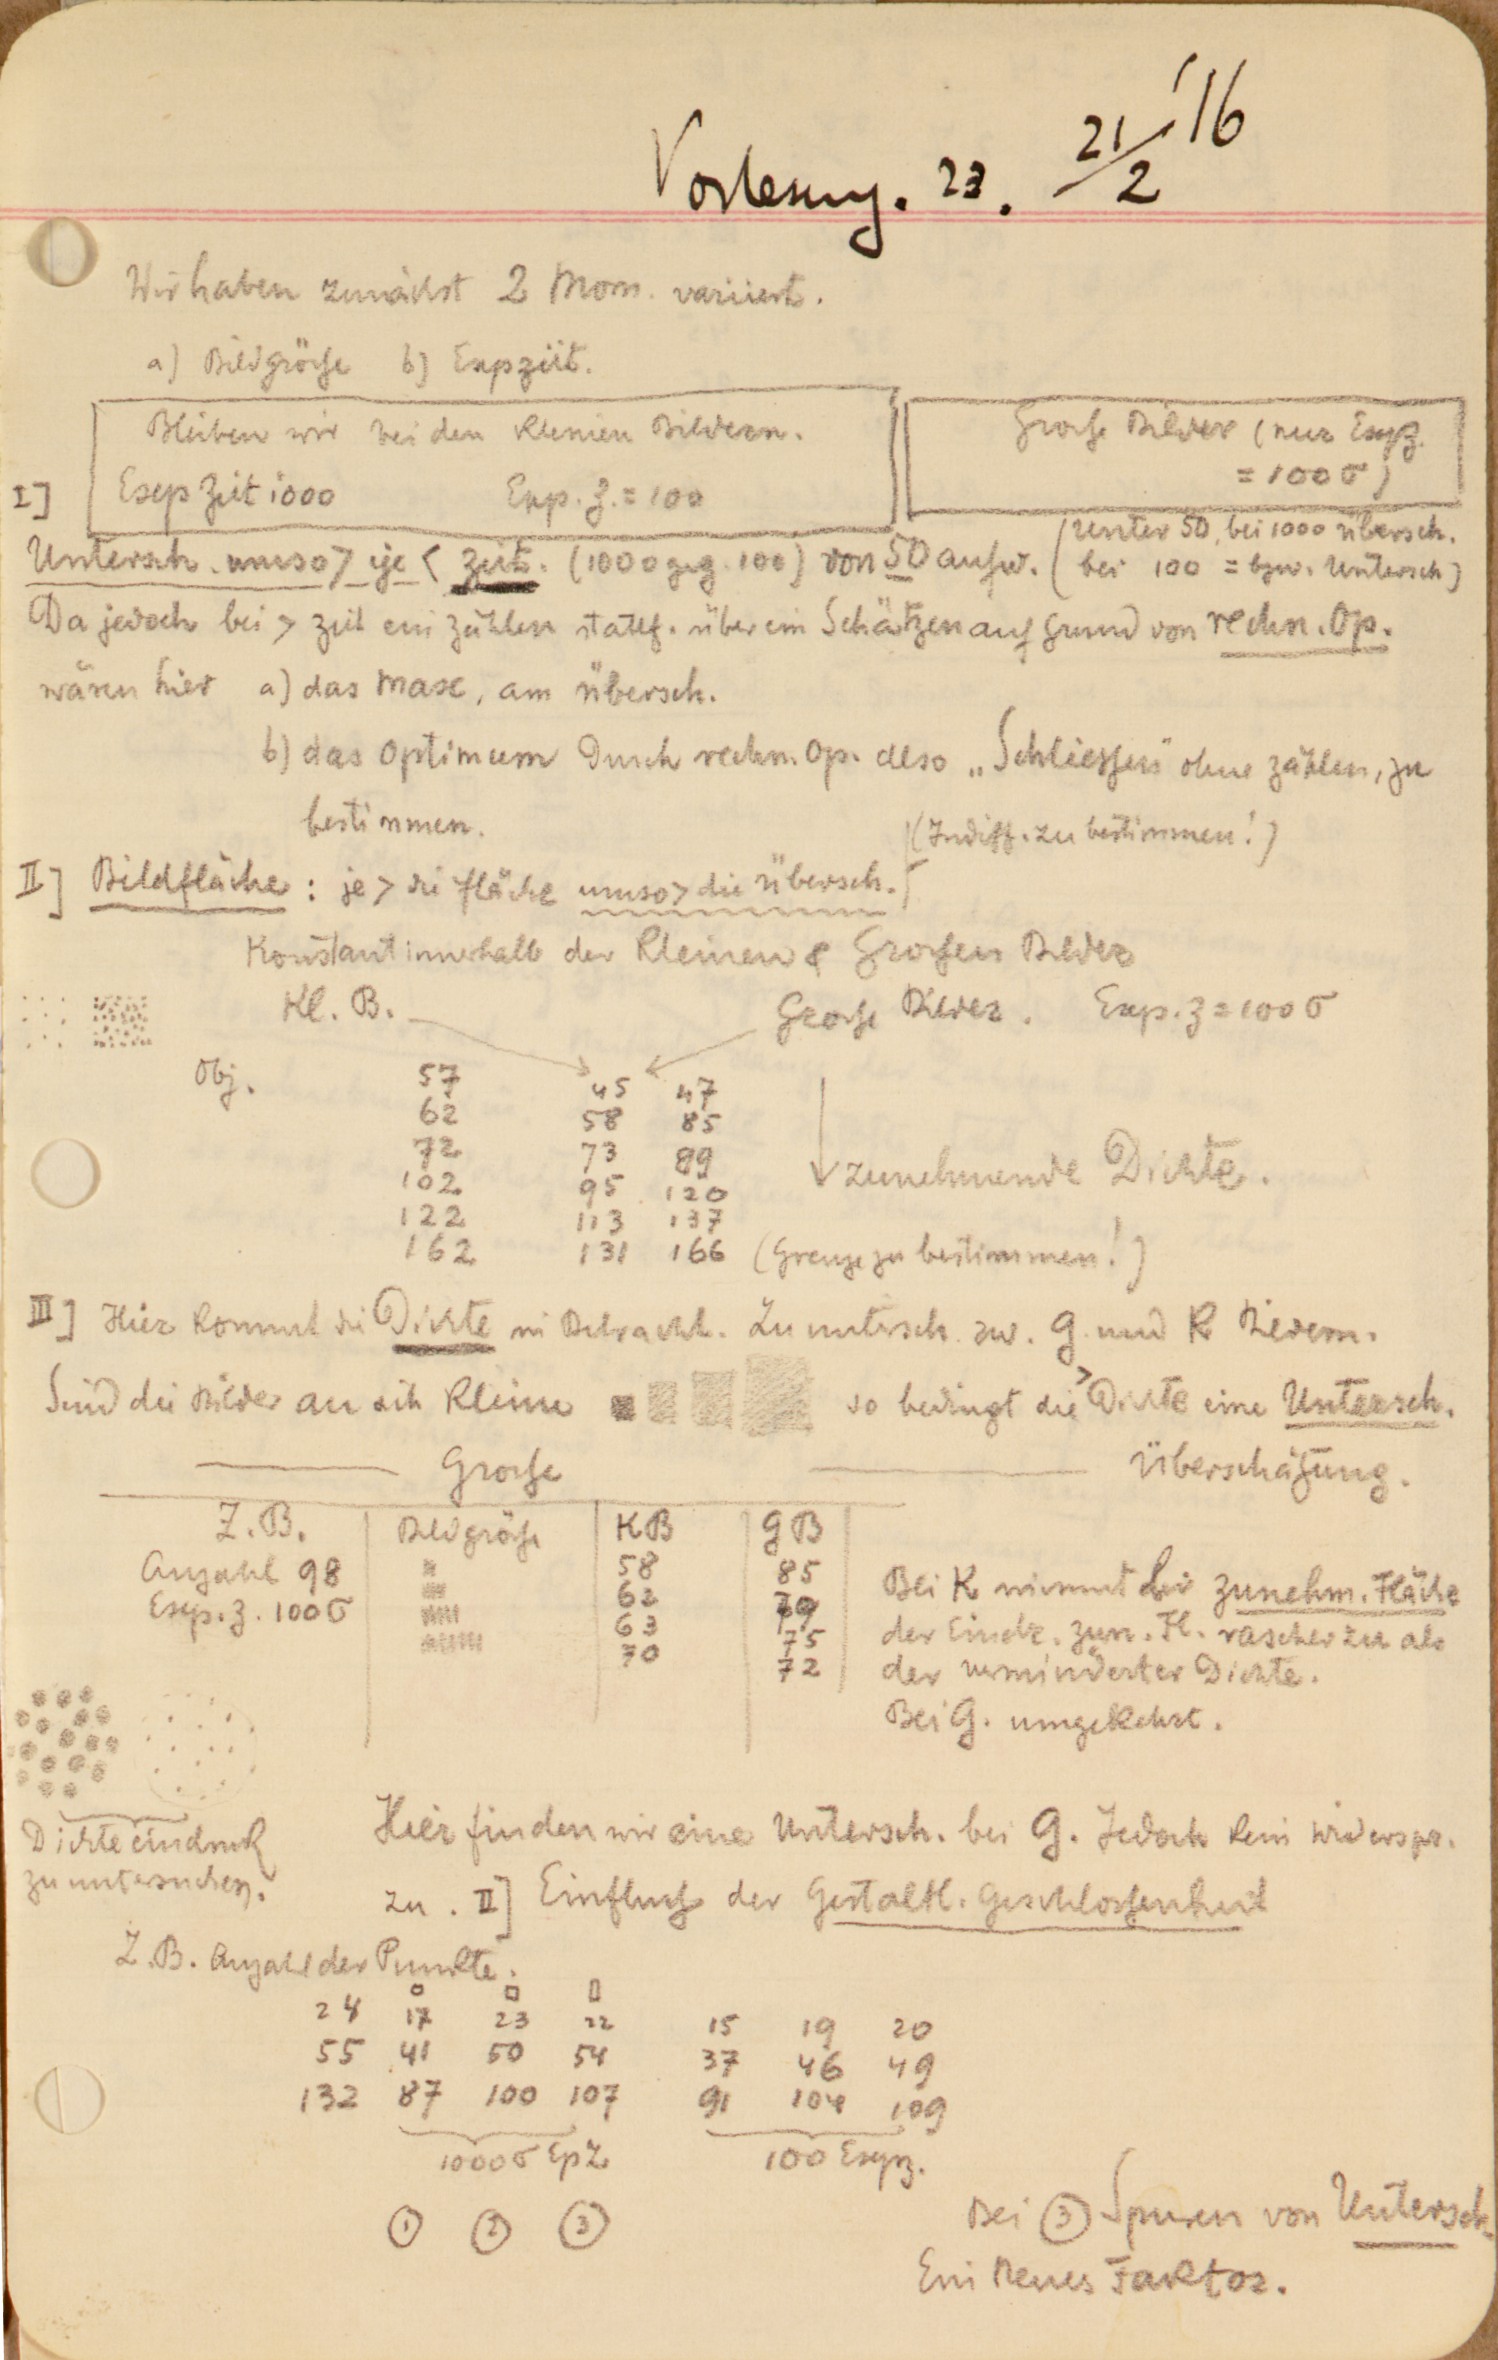 Vorlesung. 23. 21/2 '16
Wir haben zunächst 2 Mom. variiert.
a) Bildgröße b) Expzeit.
Bleiben wir bei den kleinen Bildern.
Große Bilder (nur Expz.
= 100 σ)
I] Exp Zeit 1000 Exp. Z. = 100
(Unter 50, bei 1000 übersch.
Untersch. umso > je < Zeit. (1000 geg. 100) von 50 aufw. bei 100 = bzw. Untersch)
Da jedoch bei > Zeit ein Zählen stattf. über ein Schätzen auf Grund von rechn. Op.
wären hier a) das Max. am übersch.
b) das Optimum durch rechn. Op. also „Schliessen" ohne zählen, zu
bestimmen.
(Indiff. zu bestimmen!)
II] Bildfläche: je > die Fläche umso > die übersch.
Konstant innerhalb der kleinen & Großen Bilder
Kl. B. Große Bilder. Exp. z = 100 σ
Obj. 57 45 47
62 58 85
72 73 89
102 95 120
122 113 137
162 131 166 (Grenze zu bestimmen!)
zunehmende Dichte.
III] Hier kommt die Dichte in Betracht. Zu untersch. zw. G. und K Bildern.
Sind die Bilder an sich kleine so bedingt die > Dichte eine Untersch.
Große Überschätzung.
Z.B. Bildgröße KB GB
Anzahl 98 58 85
Exp. z. 100 σ 62 79
63 75
70 72
Bei K nimmt bei zunehm. Fläche
der Eindr. zun. Fl. rascher zu als
der verminderter Dichte.
Bei G. umgekehrt.
Dichteeindruck
zu untersuchen.
Hier finden wir eine Untersch. bei G. Jedoch kein widerspr.
zu. II] Einfluß der Gestaltl. Geschlossenheit
Z.B. Anzahl der Punkte.
24 17 23 22 15 19 20
55 41 50 54 37 46 49
132 87 100 107 91 104 109
1000 σ Ep Z 100 Expz.
① ② ③
Bei ③ Spuren von Untersch.
Ein Neues Faktor.